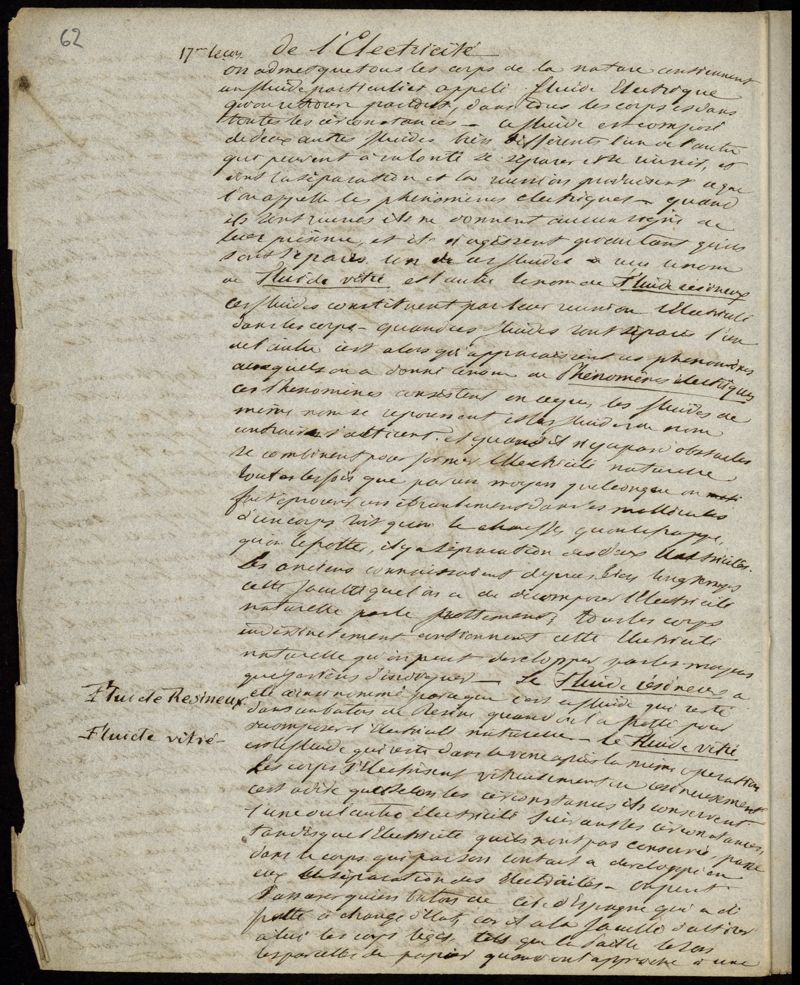 62
17me Leçon de l'Electricité
on admet que tous les corps de la nature contiennent
un fluide particulier appelé fluide Electrique
qu'on retrouve partout, dans tous les corps et dans
toutes les circonstances - ce fluide est composé
de deux autres fluides bien différents l'un de l'autre
qui peuvent à volonté se séparer et se réunir, et
dont la séparation et la réunion produisent ce que
l'on appelle les phenomènes electriques - quand
ils sont réunis ils ne donnent aucun signe de
leur présence, et ils n'agissent qu'autant qu'ils
sont séparés. l'un de ces fluides a reçu le nom
de Fluide vitré et l'autre le nom de Fluide résineux
ces fluides constituent par leur réunion l'électricité
dans les corps - quand ces fluides sont séparés l'un
de l'autre c'est alors qu'apparaissent ces phenomènes
auxquels on a donné le nom de Phénomènes électriques
ces Phenomènes consistent en ce que les fluides de
même nom se repoussent et les fluides de nom
contraire s'attirent, et quand il n'y a pas d'obstacles
se combinent pour former l'électricité naturelle
toutes les fois que par un moyen quelconque on
fait éprouver un ébranlement dans les mollécules
d'un corps soit qu'on le chauffe, qu'on le frappe,
qu'on le frotte, il y a séparation des deux électricités.
Les anciens connaissaient depuis bien longtemps
cette faculté que l'on a de décomposer l'électricité
naturelle par le frottement; tous les corps
indistinctement contiennent cette électricité
naturelle qu'on peut developper par les moyens
que je viens d'indiquer - Le Fluide résineux a
Fluide Resineux.
été ainsi nommé parce que c'est ce fluide qui reste
dans un baton de Resine quand on l'a frotté pour
Fluide vitré -
décomposer l'électricité naturelle - le fluide vitré
est le fluide qui reste dans le verre après la même opération
Les corps s'électrisent vitreusement ou résineusement
c'est à dire que selon les circonstances ils conservent
l'une ou l'autre électricité suivant les circonstances,
tandis que l'électricité qu'ils n'ont pas conservée passe
dans le corps qui par son contact a developpé en
eux la séparation des électricités - on peut
s'assurer qu'un baton de cire d'Espagne qui a été
frotté a changé d'état, car il a la faculté d'attirer
à lui les corps légers tels que la paille
les parcelles de papier quand on l'approche à une